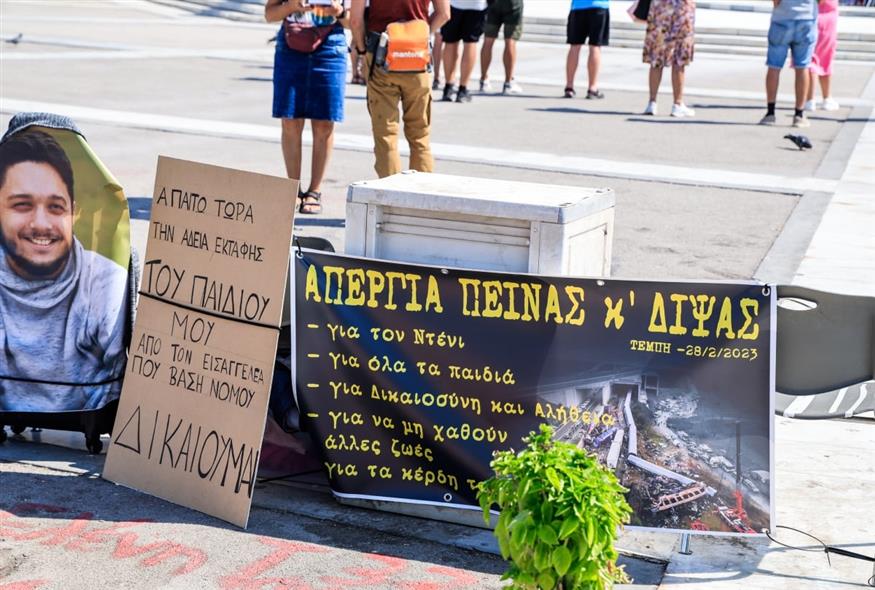 manterol
ΑΠΑΙΤΩ ΤΩΡΑ
ΤΗΝ ΑΔΕΙΑ ΕΚΤΑΦΗΣ
ΤΟΥ ΠΑΙΔΙΟΥ
ΜΟΥ
ΑΠΟ ΤΟΝ ΕΙΣΑΓΓΕΛΕΑ
ΠΟΥ ΒΑΣΗ ΝΟΜΟΥ
ΔΙΚΑΙΟΥΜΑΙ
ΑΠΕΡΓΙΑ ΠΕΙΝΑΣ κ' ΔΙΨΑΣ
ΤΕΜΠΗ -28/2/2023
- για τον Ντένι
- για όλα τα παιδιά
- για Δικαιοσύνη και Αλήθεια
- για να μη χαθούν
άλλες ζωές
για τα κέρδη τ